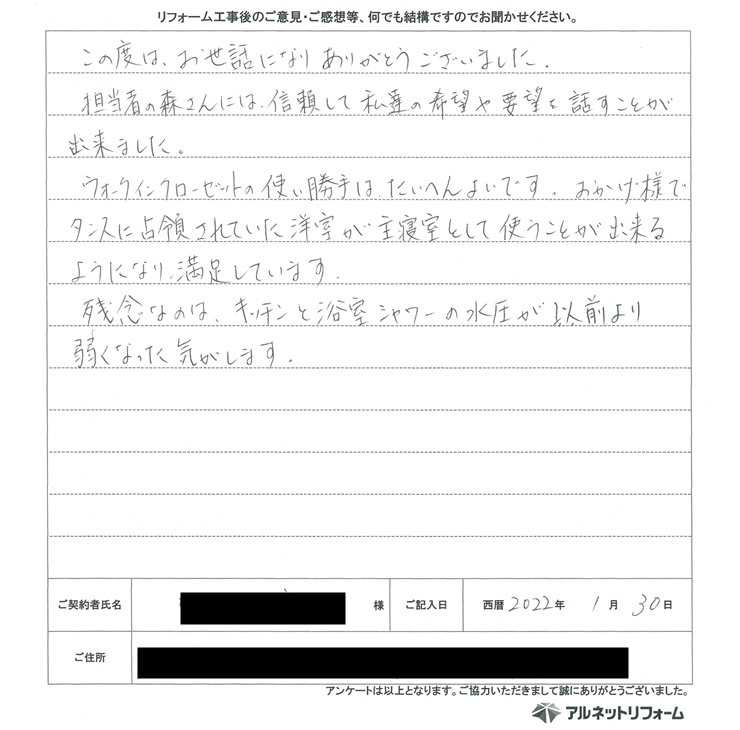 リフォーム工事後のご意見・ご感想等、何でも結構ですのでお聞かせください。
この度は、お世話になりありがとうございました.
担当者の森さんには、信頼して私達の希望や要望を話すことが
出来ました。
ウォークインクローゼットの使い勝手は、たいへんよいです。おかげ様で
タンスに占領されていた洋室が主寝室として使うことが出来る
ようになり、満足しています.
残念なのは、キッチンと浴室シャワーの水圧が以前より
弱くなった気がします.
ご契約者氏名 様 ご記入日 西暦2022年 1月 30日
ご住所
アンケートは以上となります。ご協力いただきまして誠にありがとうございました。
アルネットリフォーム